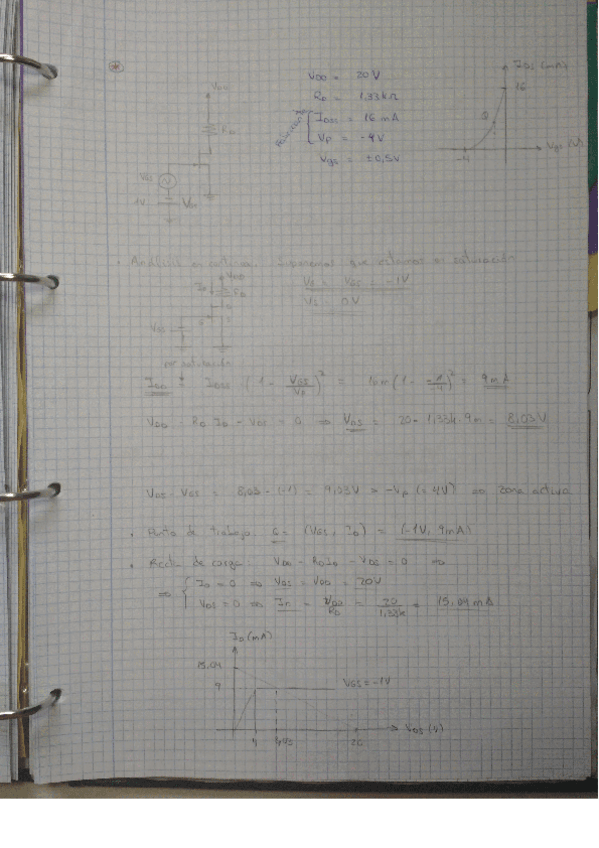 VDD = 20V
RD = 1,33kΩ
IDSS = 16 mA
VP = -4V
Vgs = ±0,5V
IDS (mA)
16
Q
-4
Vgs (V)
VDD
RD
VGS
1V
· Análisis en continua. Suponemos que estamos en saturación
VG = VGS = -1V
VS = 0V
VDD
ID
RD
VGS
IDQ = IDSS (1 - VGS/VP)² = 16m (1 - -1/-4)² = 9mA
VDD - RD·ID - VDS = 0 ⇒ VDS = 20 - 1,33k·9m = 8,03V
VDS - VGS = 8,03 - (-1) = 9,03V > -VP (= 4V) ⇒ Zona activa
· Punto de trabajo: Q = (VGS, ID) = (-1V, 9mA)
· Recta de carga: VDD - RDID - VDS = 0 ⇒
⇒ { ID = 0 ⇒ VDS = VDD = 20V
VDS = 0 ⇒ ID = VDD/RD = 20/1,33k = 15,04 mA
ID (mA)
15,04
9
VGS = -1V
4
20
VDS (V)